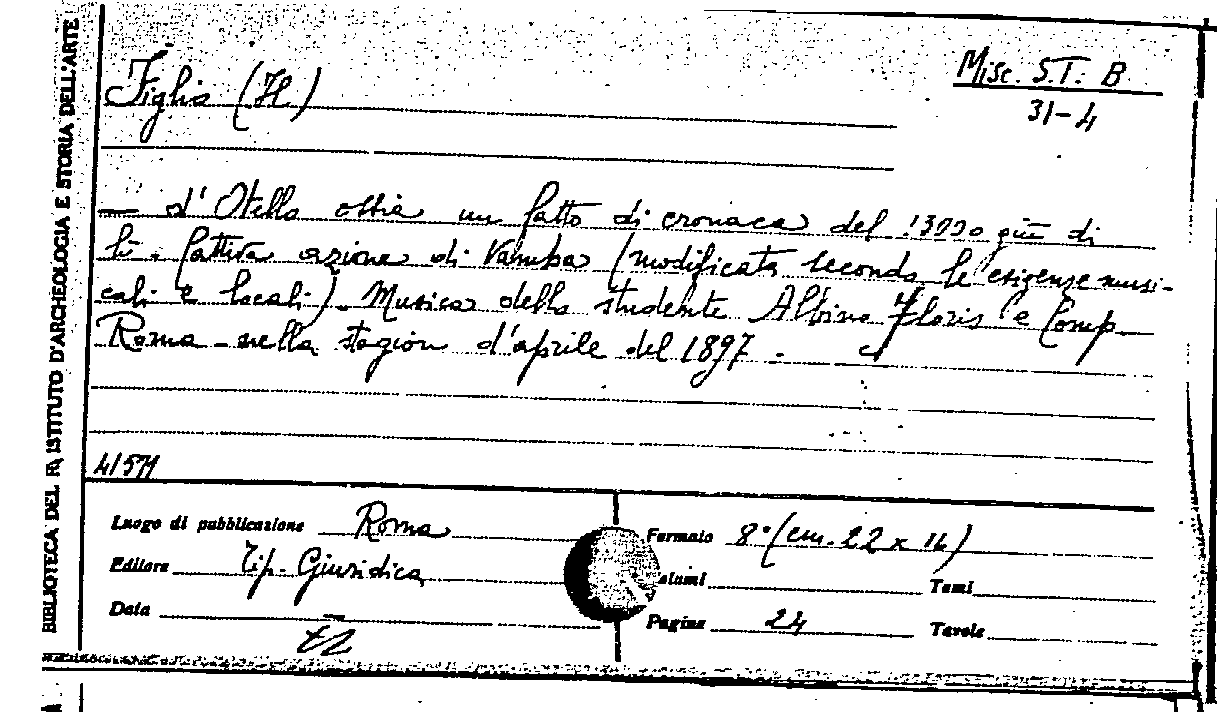 BIBLIOTECA DEL R. ISTITUTO D'ARCHEOLOGIA E STORIA DELL'ARTE
Misc. S.T. B
31-4
Figlia (H)
— d'Otello ossia un fatto di cronaca del 13.. giù di
lì. fattiva azione di Vamba (modificata secondo le esigenze musi-
cali e locali). Musica dello studente Albino Floris e Comp.
Roma - nella stagion d'aprile del 1897 .
41571
Luogo di pubblicazione Roma
Editore Tip. Giuridica
Data
Formato 8° (cm. 22 x 16)
Volumi Tomi
Pagine 24 Tavole